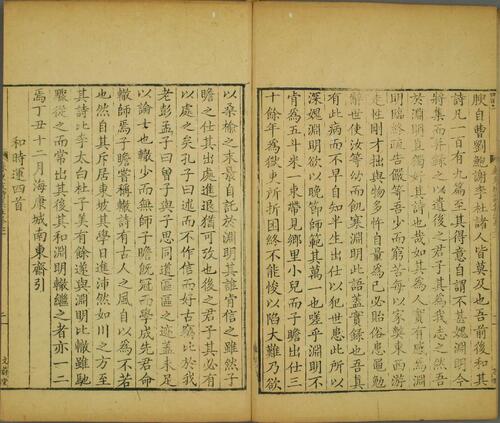 腴自曹劉鮑謝李杜諸人皆莫及也吾前後和其
詩凡一百有九篇至其得意自謂不甚愧淵明今
將集而并錄之以遺後之君子其為我志之然吾
於淵明豈獨好其詩也哉如其為人實有感焉淵
明臨終疏告儼等吾少而窮苦每以家弊東西游
走性剛才拙與物多忤自量為己必貽俗患黽勉
辭世使汝等幼而飢寒淵明此語蓋實錄也吾真
有此病而不早自知半生出仕以犯世患此所以
深媿淵明欲以晚節師範其萬一也嗟乎淵明不
肯為五斗米一束帶見鄉里小兒而子瞻出仕三
十餘年為獄吏所折困終不能悛以陷大難乃欲
以桑榆之末景自託於淵明其誰肯信之雖然子
瞻之仕其出處進退猶可攷也後之君子其必有
以處之矣孔子曰述而不作信而好古竊比於我
老彭孟子曰曾子與子思同道區區之迹蓋未足
以論士也轍少而無師子瞻既冠而學成先君命
轍師焉子瞻嘗稱轍詩有古人之風自以為不若
也然自其斥居東坡其學日進沛然如川之方至
其詩比李太白杜子美有餘遂與淵明比轍雖馳
驟從之而常出其後其和淵明轍繼之者亦一二
焉丁丑十二月海康城南東齋引
和時運四首
二